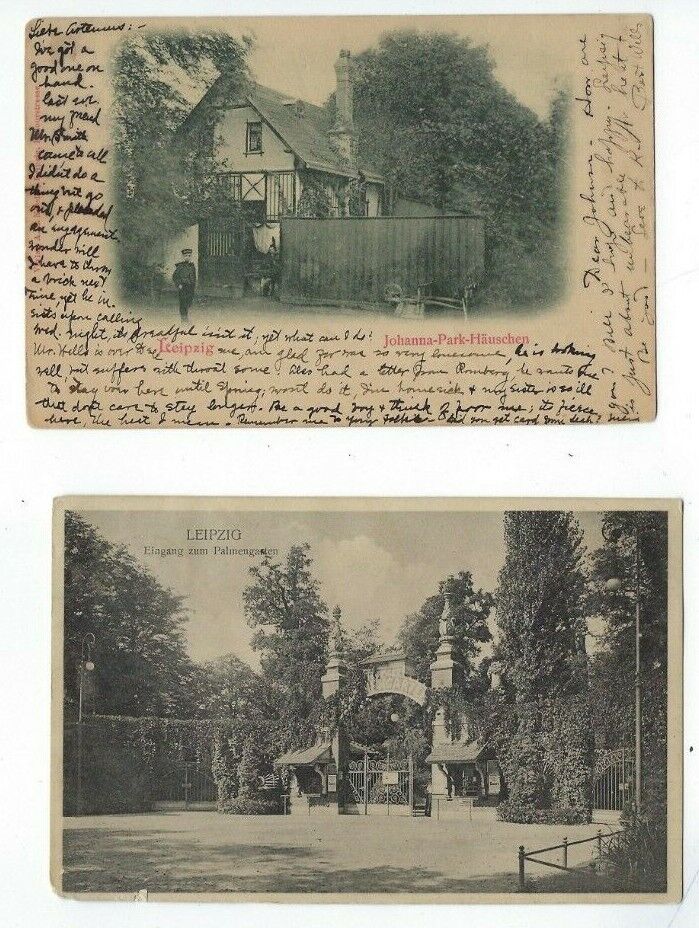 Liebe Artemus:-
We got a
good one on
hand.
last eve
my friend
Mr. Smith
came to call
I didn't do a
thing but go
out, & pleaded
an engagement
wonder will
I have to throw
a brick next
time, yet he in-
sists upon calling
Wed. night, its dreadful isn't it, yet what can I do?
Leipzig
Johanna-Park-Häuschen
Mr. Wells is over to see me, am glad for was so very lonesome, he is looking
well but suffers with throat some. Also had a letter from Romberg he wants me
to stay over here until Spring, won't do it, I'm homesick & my sister is so ill
that don't care to stay longer. Be a good boy & think of poor me; its fierce
here, the heat I mean. Remember me to your folks. Did you get card from
Dear Johnny. How are
you? Well I hope and happy. Leipzig
is just about unbearable heat
Be good - Love to
Bert Wells
LEIPZIG
Eingang zum Palmengarten